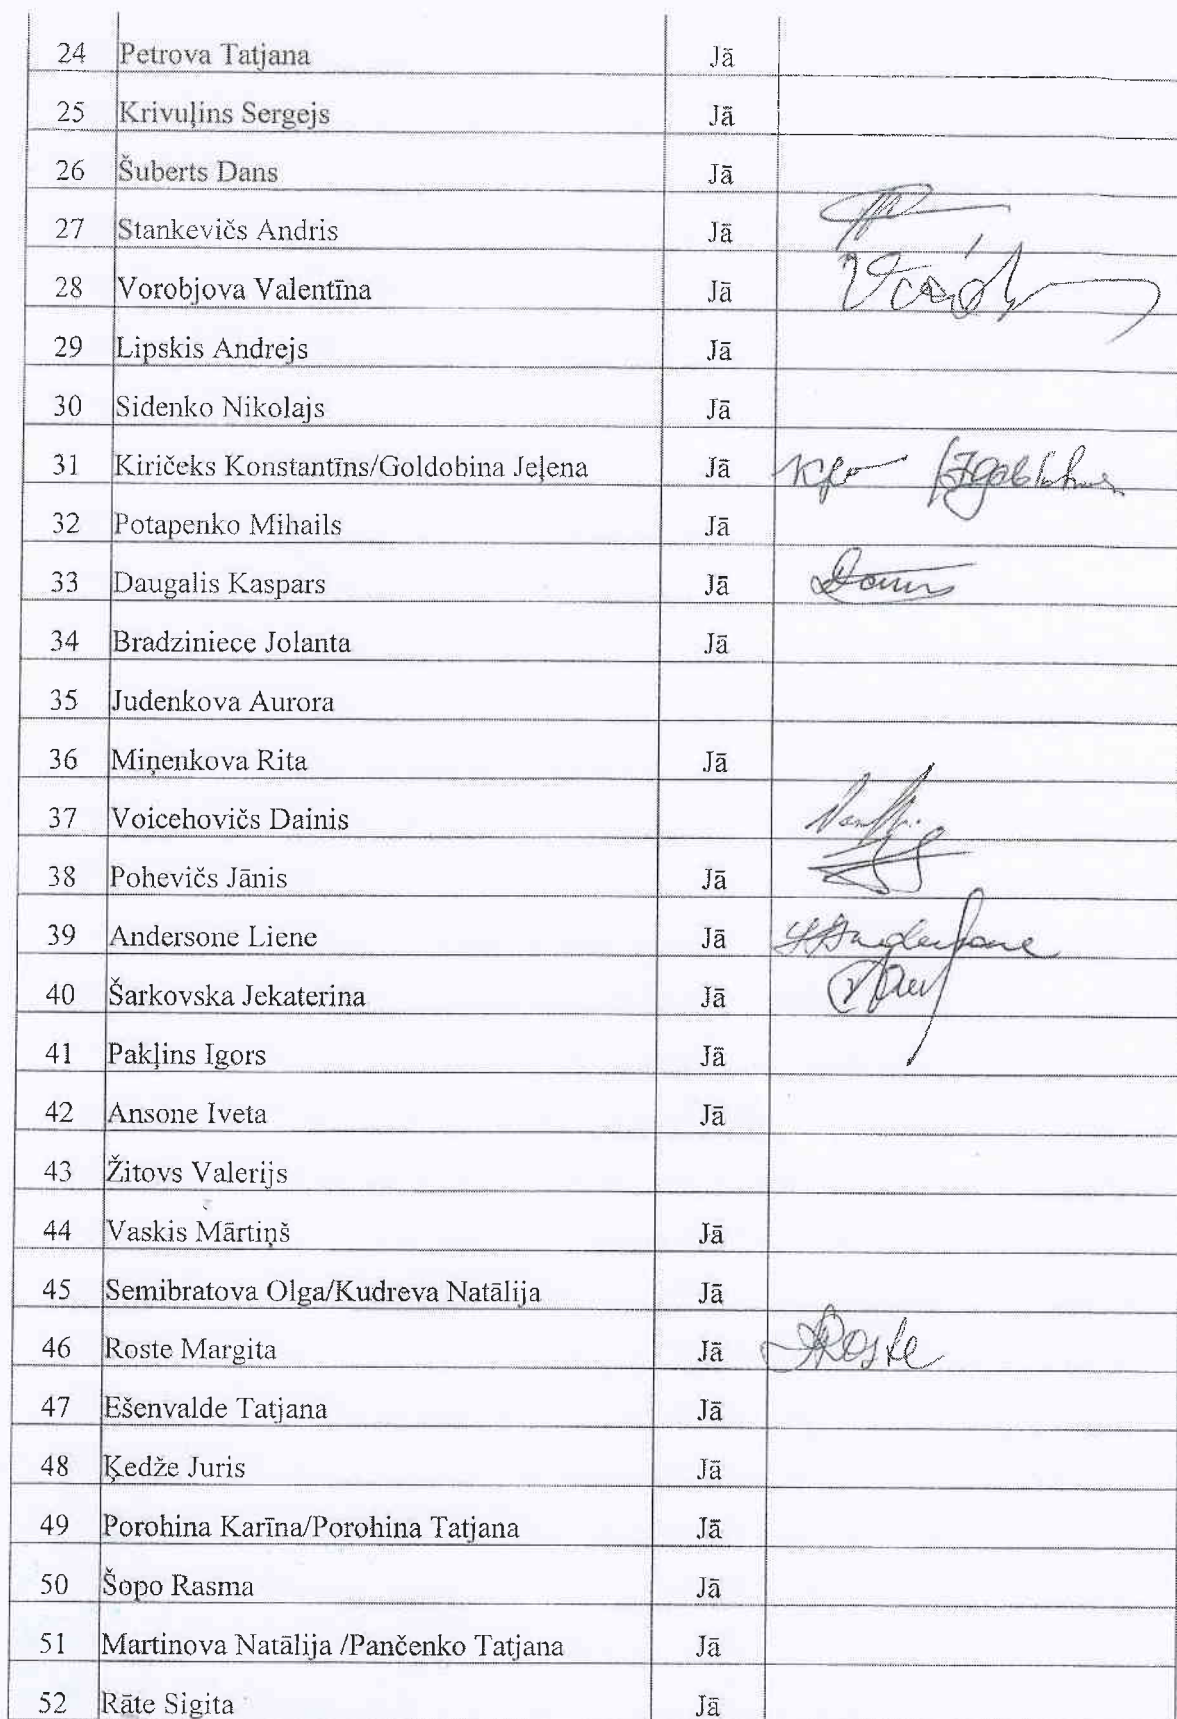 24 Petrova Tatjana Jā
25 Krivuļins Sergejs Jā
26 Šuberts Dans Jā
27 Stankevičs Andris Jā
28 Vorobjova Valentīna Jā
29 Lipskis Andrejs Jā
30 Sidenko Nikolajs Jā
31 Kiričeks Konstantīns/Goldobina Jeļena Jā
32 Potapenko Mihails Jā
33 Daugalis Kaspars Jā
34 Bradziniece Jolanta Jā
35 Judenkova Aurora
36 Miņenkova Rita Jā
37 Voicehovičs Dainis
38 Pohevičs Jānis Jā
39 Andersone Liene Jā
40 Šarkovska Jekaterina Jā
41 Pakļins Igors Jā
42 Ansone Iveta Jā
43 Žitovs Valerijs
44 Vaskis Mārtiņš Jā
45 Semibratova Olga/Kudreva Natālija Jā
46 Roste Margita Jā Roste
47 Ešenvalde Tatjana Jā
48 Ķedže Juris Jā
49 Porohina Karīna/Porohina Tatjana Jā
50 Šopo Rasma Jā
51 Martinova Natālija /Pančenko Tatjana Jā
52 Rāte Sigita Jā